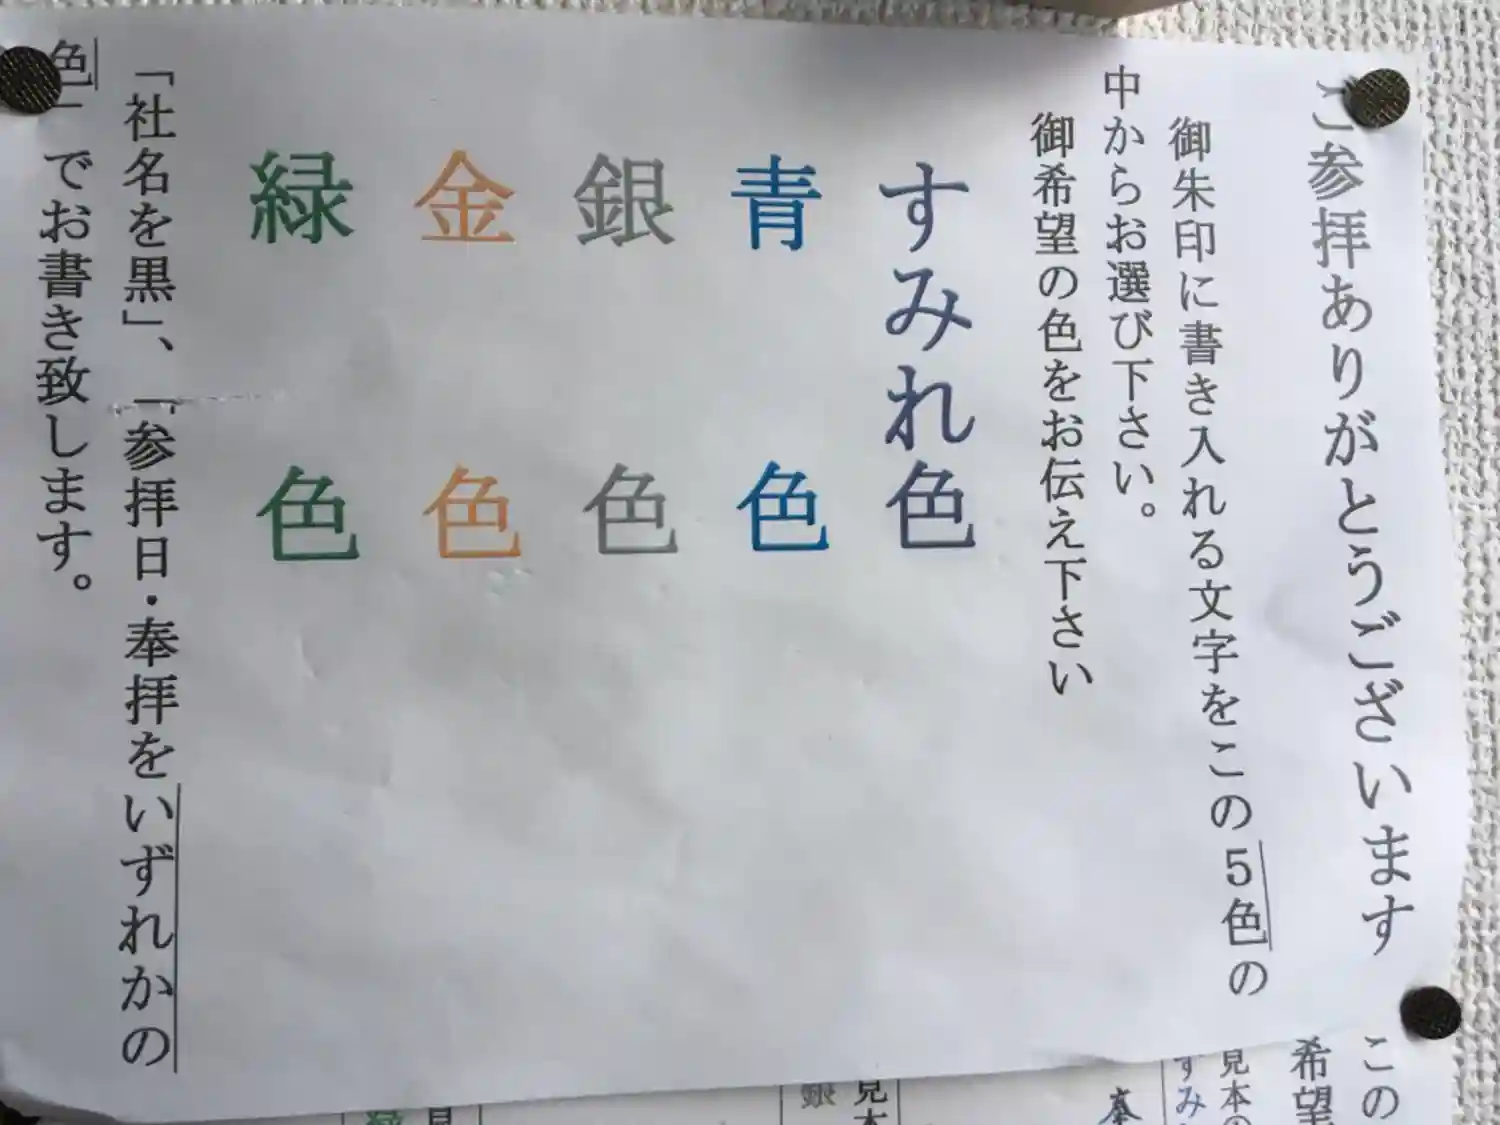 ご参拝ありがとうございます
御朱印に書き入れる文字をこの5色の
中からお選び下さい。
御希望の色をお伝え下さい
すみれ色
青色
銀色
金色
緑色
「社名を黒」、「参拝日・奉拝をいずれかの
色」でお書き致します。
この
希望
見本の
すみ
奉
見本
銀
緑